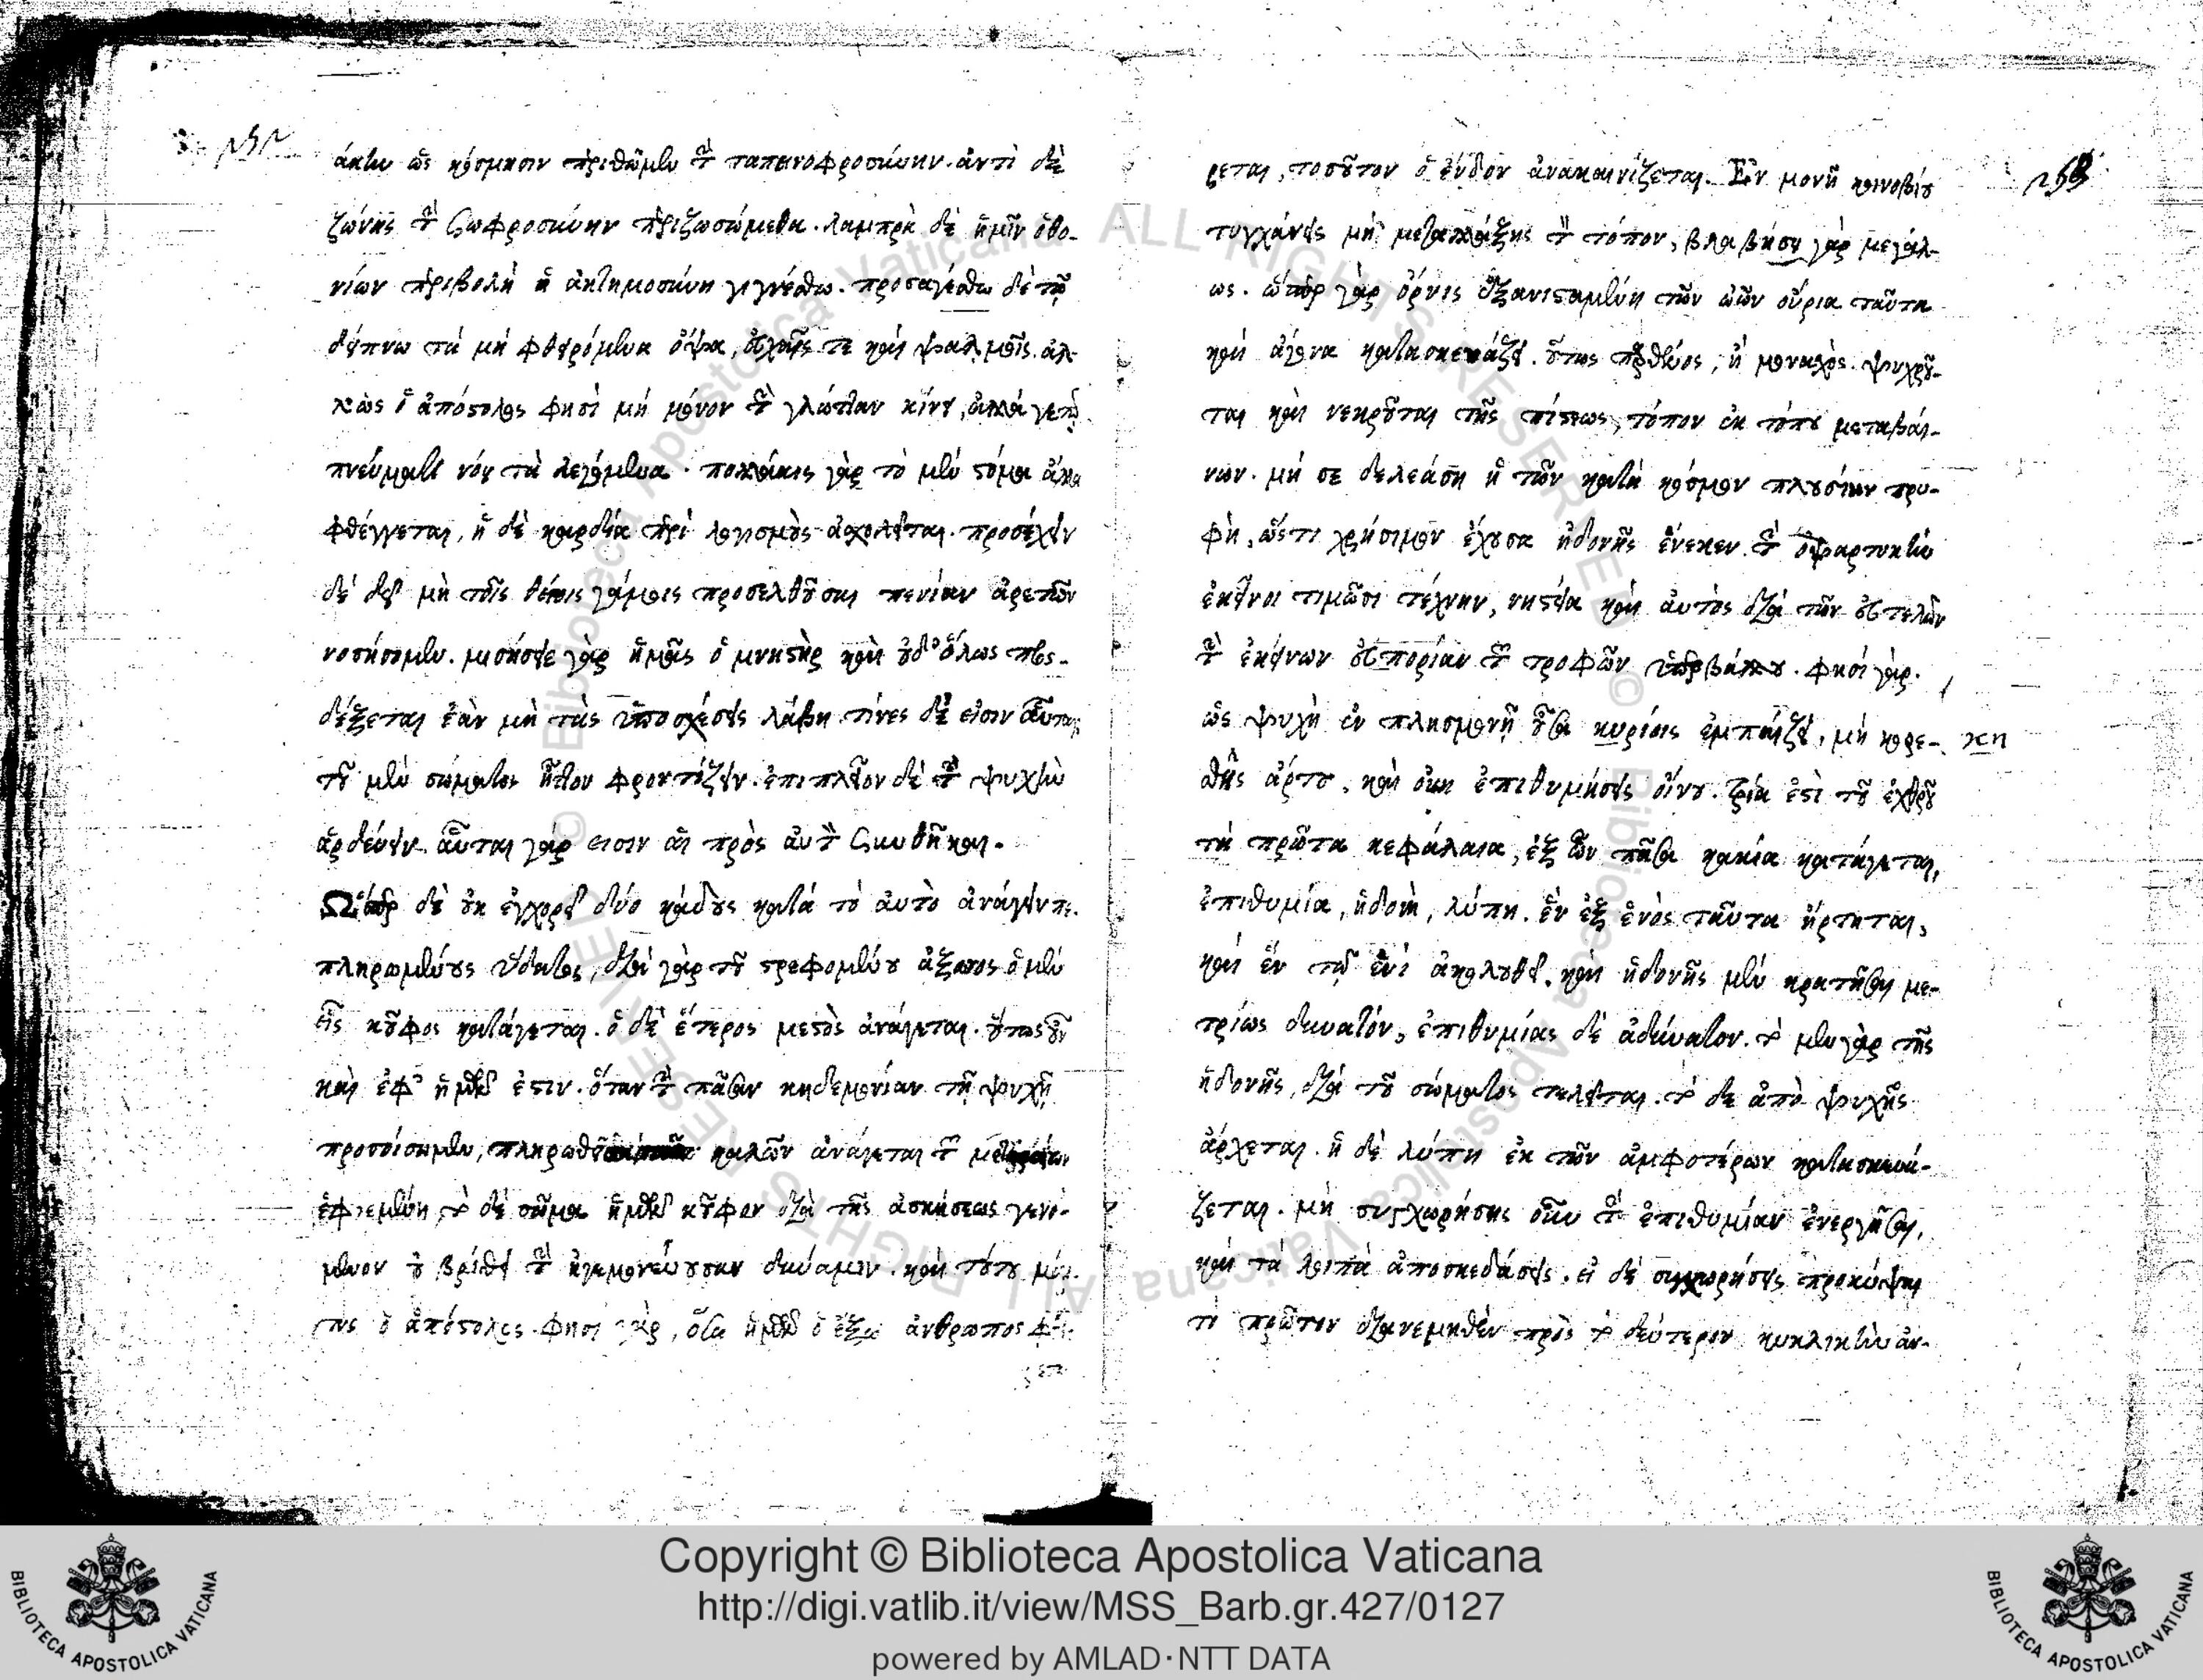 ἀκὴν ὡς κόσμησιν περιθῶμεν τὴν ταπεινοφροσύνην. ἀντὶ δὲ
ζώνης τὴν σωφροσύνην περιζωσώμεθα. λαμπρὰ δὲ ἡμῖν ὀθο-
νίων περιβολὴ ἡ ἀκτημοσύνη γιγνέσθω. προσαγέσθω δὲ τῷ
δείπνω τὰ μὴ φθειρόμενα ὄψα, εὐχαῖς τε καὶ ψαλμοῖς. ἀλ-
λ' ὡς ὁ ἀπόστολος φησὶ μὴ μόνον τὴν γλώτταν κίνει, ἀλλά γε τῷ
πνεύματι νόει τὰ λεγόμενα. πολλάκις γὰρ τὸ μὲν στόμα ἄλλα
φθέγγεται, ἡ δὲ καρδία περὶ λογισμοὺς ἀσχολεῖται. προσέχειν
δὲ δεῖ μὴ τοῖς θείοις γάμοις προσελθοῦσαι πενίαν ἀρετῶν
νοσήσωμεν. μισήσειε γὰρ ἡμᾶς ὁ μνηστὴρ καὶ οὐδ' ὅλως προσ-
δέξεται ἐὰν μὴ τὰς ὑποσχέσεις λάβη τίνες δὲ εἰσιν αὗται;
τοῦ μὲν σώματος ἧττον φροντίζειν. ἐπιπλεῖον δὲ τὴν ψυχὴν
ἀρδεύειν. αὗται γάρ εισιν αἱ πρὸς αὐτὸν συνθῆκαι.
Ὥσπερ δὲ οὐκ ἐγχορεῖ δύο κάδους κατὰ τὸ αὐτὸ ἀνάγειν πε-
πληρωμένους ὕδατος, διὰ γὰρ τοῦ στρεφομένου ἄξωνος ὁ μὲν
εἷς κοῦφος κατάγεται. ὁ δὲ ἕτερος μεστὸς ἀνάγεται. οὕτως οὖν
καὶ ἐφ' ἡμῶν ἐστιν. ὅταν τὴν πᾶσαν κηδεμονίαν τῆ ψυχῆ
προσοίσωμεν, καλῶν ἀνάγεται τῶν
ἐφιεμένη, τὸ δὲ σῶμα ἡμῶν κοῦφον διὰ τῆς ἀσκήσεως γενό-
μενον οὐ βρίθει τὴν ἡγεμονεύουσαν δύναμιν. καὶ τούτου μάρ-
τυς ὁ ἀπόστολος. φησὶ γὰρ, ὅσα ἡμῶν ὁ ἔξω ἄνθρωπος φθεί-
ρεται
ρεται, τοσοῦτον ὁ ἔνδον ἀνακαινίζεται. Ἐν μονῆ κοινοβίου
τυγχάνεις μὴ μεταλλάξης τὸν τόπον, βλαβήση γὰρ μεγάλ-
ως. ὥσπερ γὰρ ὄρνις ἐξανισταμένη τῶν ὠῶν οὔρια ταῦτα
καὶ ἄγονα κατασκευάζει. οὕτως παρθένος, ἢ μοναχὸς ψυχροῦ-
ται καὶ νεκροῦται τῆς πίστεως, τόπον ἐκ τόπου μεταβάι-
νων. μή σε δελεάση ἡ τῶν κατὰ κόσμον πλουσίων τρυ-
φὴ, ὥς τι χρήσιμον ἔχουσα ἡδονῆς ἕνεκεν. τὴν ὀψαρτυκὴν
ἐκεῖνοι τιμῶσι τέχνην, νηστεία καὶ αὐτὸς διὰ τῶν εὐτελῶν
τὴν ἐκείνων εὐπορίαν τῶν τροφῶν ὑπερβάλλου. φησὶ γάρ.
ὡς ψυχὴ ἐν πλησμονῆ οὖσα κυρίοις ἐμπαίζει, μὴ κορε- κη
σθῆς ἄρτου, καὶ οὐκ ἐπιθυμήσεις οἴνου. τρία ἐστὶ τοῦ ἐχθροῦ
τὰ πρῶτα κεφάλαια, ἐξ ὧν πᾶσα κακία κατάγεται,
ἐπιθυμία, ἡδονὴ, λύπη. ἓν ἐξ ἑνὸς ταῦτα ἤρτηται,
καὶ ἓν τῷ ἑνὶ ἀκολουθεῖ. καὶ ἡδονῆς μὲν κρατῆσαι με-
τρίως δυνατόν, ἐπιθυμίας δὲ ἀδύνατον. τὸ μὲν γὰρ τῆς
ἡδονῆς, διὰ τοῦ σώματος τελεῖται. τὸ δὲ ἀπὸ ψυχῆς
ἄρχεται. ἡ δὲ λύπη ἐκ τῶν ἀμφοτέρων κατασκευά-
ζεται. μὴ συγχωρήσης οὖν τὴν ἐπιθυμίαν ἐνεργῆσαι,
καὶ τὰ λοιπὰ ἀποσκεδάσεις. εἰ δὲ συγχωρήσεις προκύψαι
τὸ πρῶτον διανεμηθὲν πρὸς τὸ δεύτερον κυκλικὴν ἀν-
Copyright © Biblioteca Apostolica Vaticana
http://digi.vatlib.it/view/MSS_Barb.gr.427/0127
powered by AMLAD·NTT DATA
BIBLIOTECA APOSTOLICA VATICANA
BIBLIOTECA APOSTOLICA VATICANA